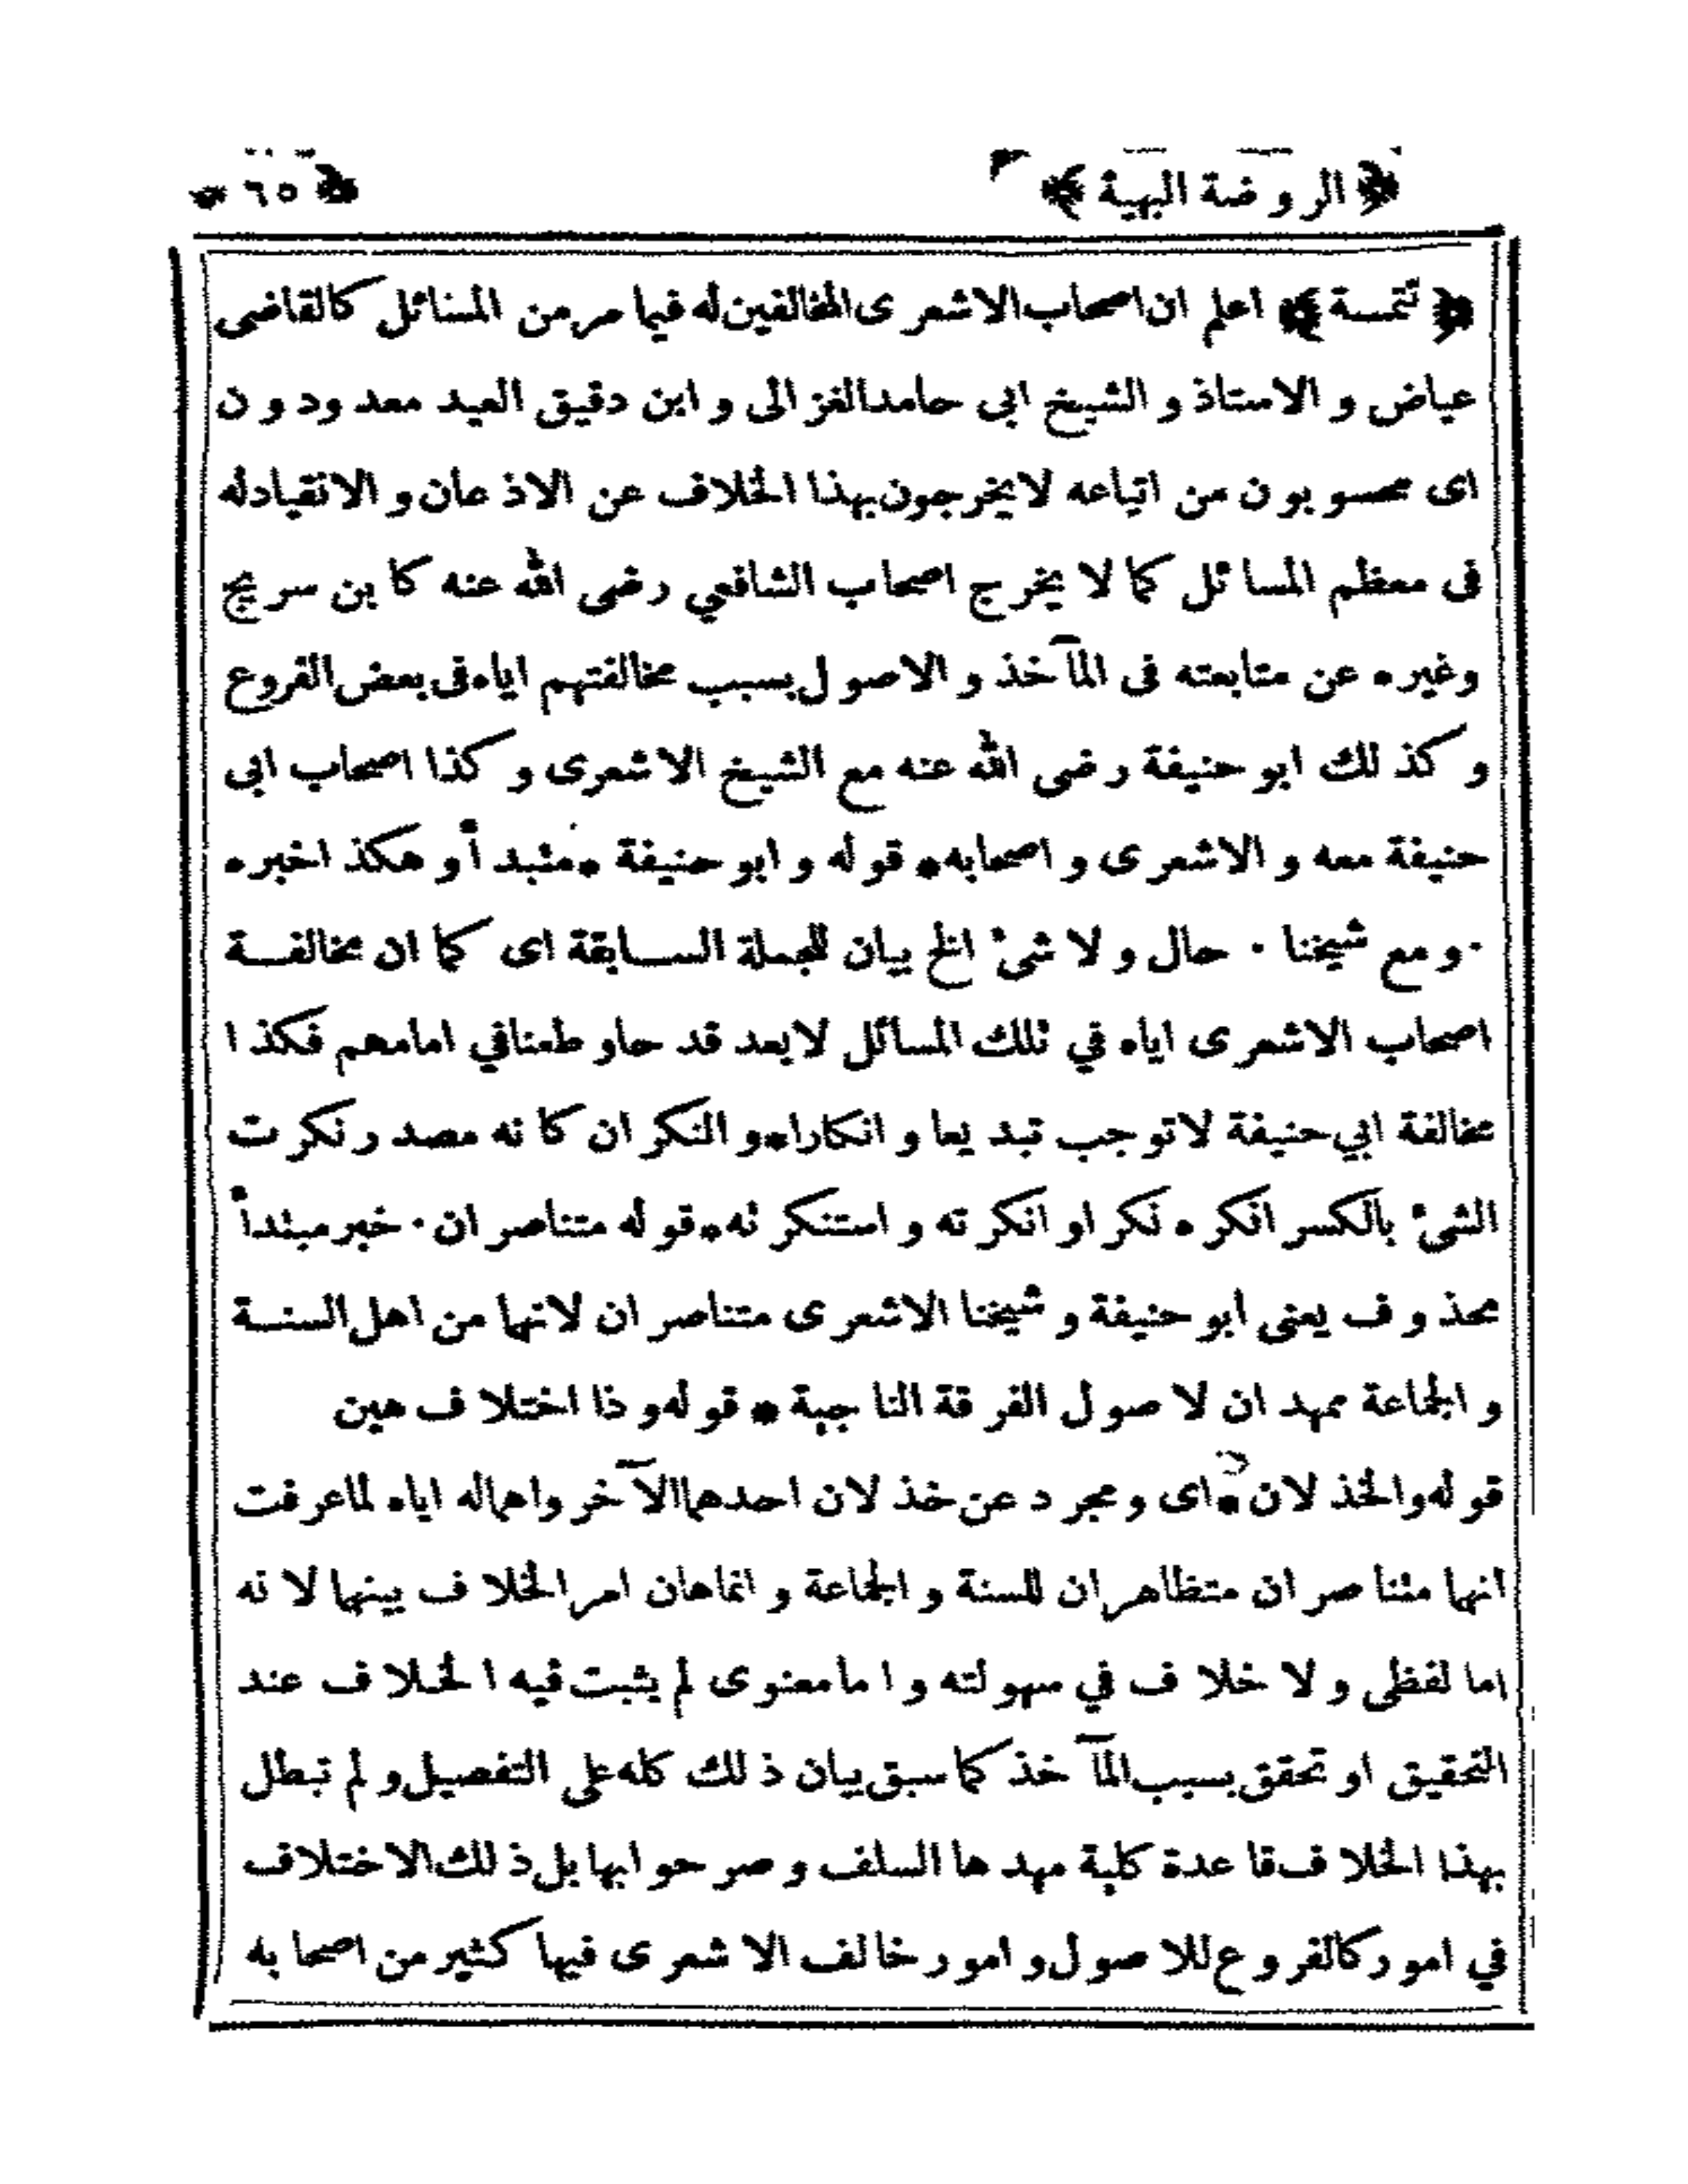 ﴿ الروضة البهية ﴾ ﴿ ٦٥ ﴾
﴿ تتمـــة ﴾ اعلم ان اصحاب الاشعرى المخالفين له فيما مر من المسائل كالقاضى
عياض و الاستاذ و الشيخ ابى حامد الغزالى و ابن دقيق العيد معدودون
اى محسوبون من اتباعه لا يخرجون بهذا الخلاف عن الاذعان و الانقياد له
فى معظم المسائل كما لا يخرج اصحاب الشافعي رضى الله عنه كابن سريج
وغيره عن متابعته فى المآخذ و الاصول بسبب مخالفتهم اياه فى بعض الفروع
و كذلك ابو حنيفة رضى الله عنه مع الشيخ الاشعرى و كذا اصحاب ابى
حنيفة معه و الاشعرى و اصحابه * قوله و ابو حنيفة * مبتدأ و هكذا خبره
· و مع شيخنا · حال و لا شئ الخ بيان للجملة الســـابقة اى كما ان مخالفـــة
اصحاب الاشعرى اياه في تلك المسائل لا يعد قدحا و طعنا في امامهم فكذا
مخالفة ابي حنيفة لا توجب تبديعا و انكارا * و النكران كانه مصدر نكرت
الشئ بالكسر انكره نكرا و انكرته و استنكرته * قوله متناصران · خبر مبتدأ
محذوف يعنى ابو حنيفة و شيخنا الاشعرى متناصران لانهما من اهل السنـــة
و الجماعة ممهدان لاصول الفرقة الناجية * قوله و ذا اختلاف هين
قوله والخذلان * اى و مجرد عن خذلان احدهما الآخر واهماله اياه لما عرفت
انهما متناصران متظاهران للسنة و الجماعة و انما هان امر الخلاف بينهما لانه
اما لفظى و لا خلاف في سهولته و اما معنوى لم يثبت فيه الخلاف عند
التحقيق او تحقق بسبب المآخذ كما سبق بيان ذلك كله على التفصيل و لم تبطل
بهذا الخلاف قاعدة كلية مهدها السلف و صرحوا بها بل ذلك الاختلاف
في امور كالفروع للاصول و امور خالف الاشعرى فيها كثير من اصحابه